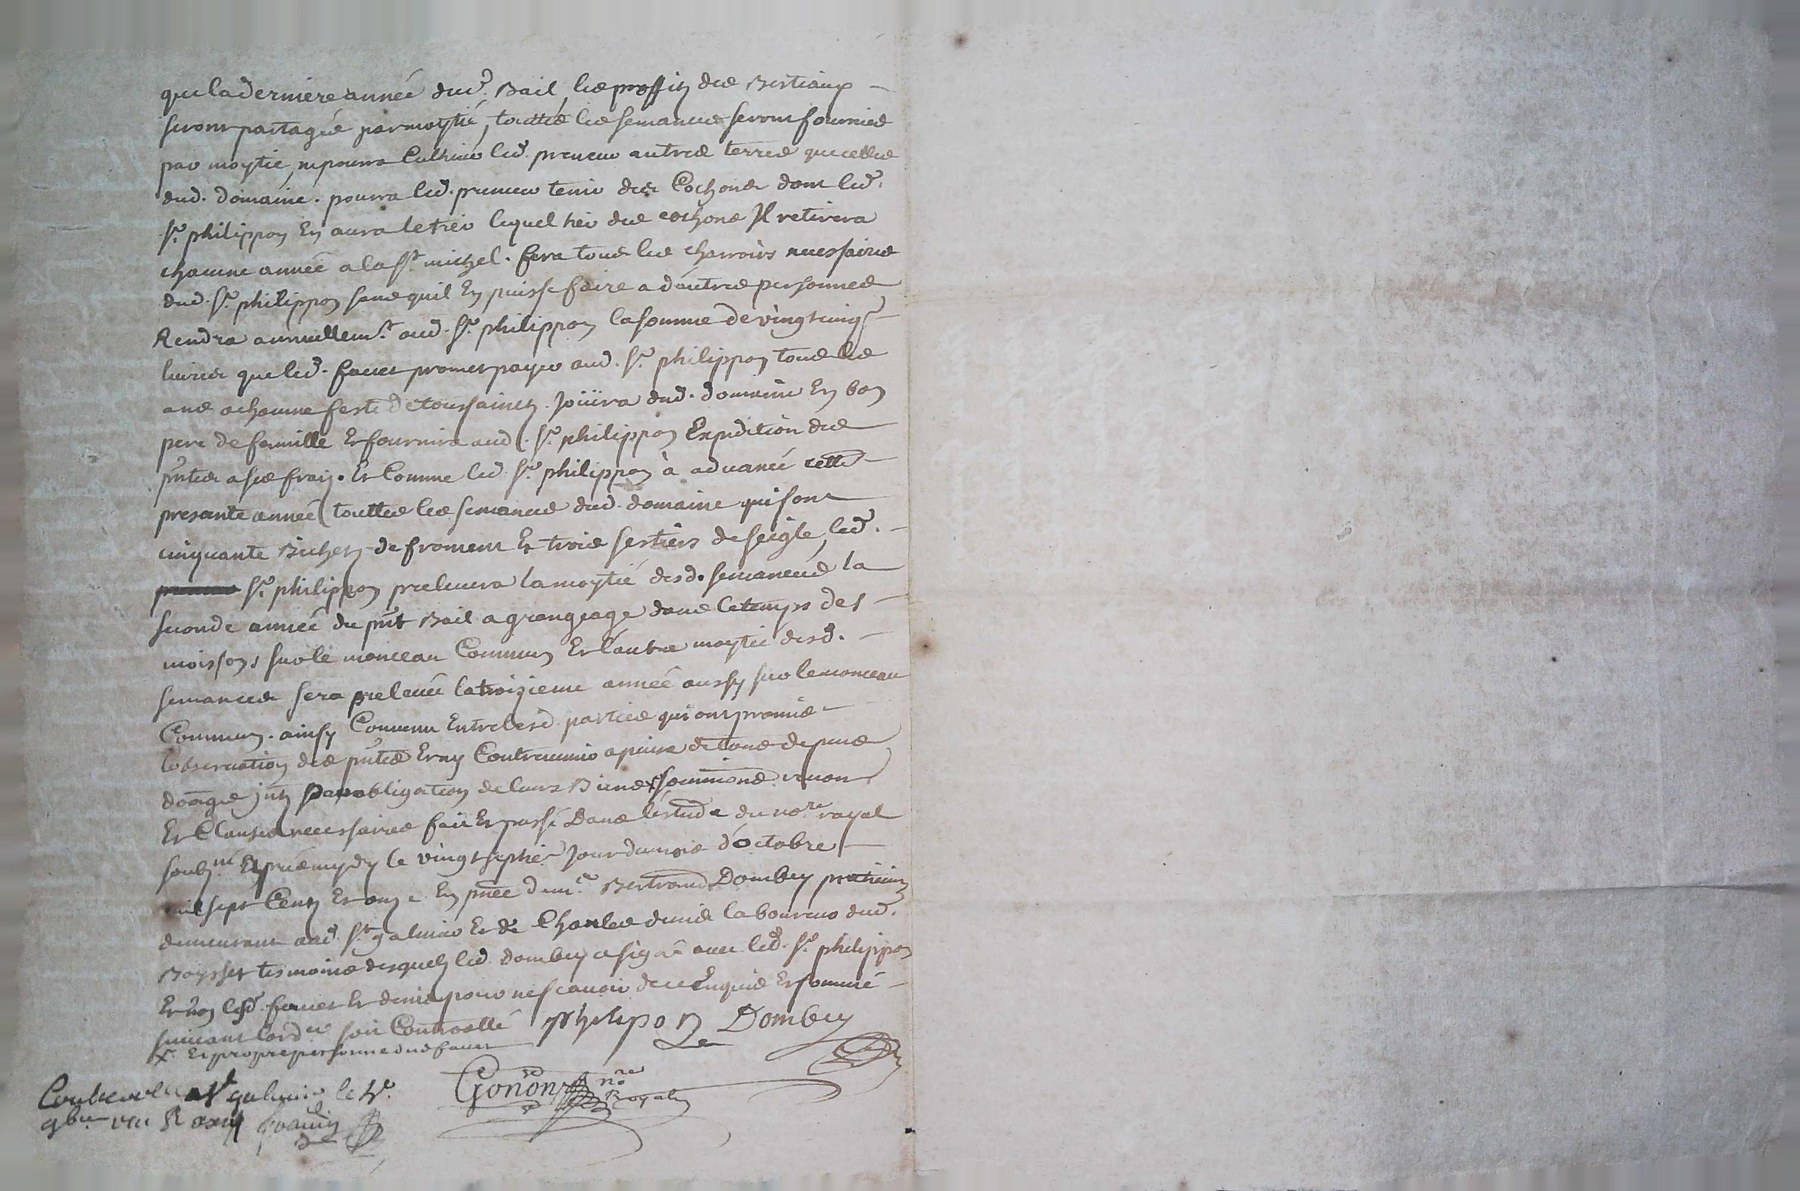 que la derniere année dud. Bail, les proffits des Bestiaux
seront partagés par moytié, touttes les semances seront fournies
par moytié, ne pourra Cultiver led. preneur autres terres que celles
dud. domaine. pourra led. preneur tenir des Cochons dont led.
Sr. philippon En aura le tier lequel tier des cochons Il retirera
chacune année a la St. michel. fera tous les charrois necessaires
dud. Sr. philippon sans quil En puisse faire a d'autres personnes
Rendra annuellemt. aud. Sr. philippon la somme de vingt cinq
livres que led. faver promet payer aud. Sr. philippon tous les
ans a chacune feste de toussaincts. Joüira dud. domaine En bon
pere de famille Et fournira aud. Sr. philippon Expedition des
pntes a ses frais. Et Comme led. Sr. philippon à advancé cette
presante année touttes les semances dud. domaine qui sont
cinquante Bichets de froment Et trois sestiers de seigle, led.
Sr. philippon prelevera la moytié desd. semances la
seconde année du pnt Bail a grangeage dans le temps des
moissons sur le monceau Commun Et l'autre moytié desd.
semances sera prelevée la troizieme année aussy sur le monceau
Commun. ainsy Convenu Entre lesd. parties qui ont promis
l'observation des pntes Et ny Contrevenir a peine de tous depens
domages jnts par obligation de leurs Biens x soumissions renon
Et Clauses necessaires fait Et passé Dans l'estude du nore. royal
soubzné. Et apres mydy le vingt septie. Jour du mois d'octobre
mil sept Cents Et onze En pnce de me. Bertrand Dombey praticien
demeurant aud. St. galmier Et de Charles denis laboureur dud.
Boysset tesmoins desquels led. Dombey a signé avec led. Sr. philippon
Et non led. faver Et denis pour ne scavoir de ce Enquis Et sommé
suivant l'ordce. soit Controllé Philipon Dombey
x Et propre personne dud faver
Controllé a St galmier le 4e.
9bre 1711 R
Gonon nre Royal